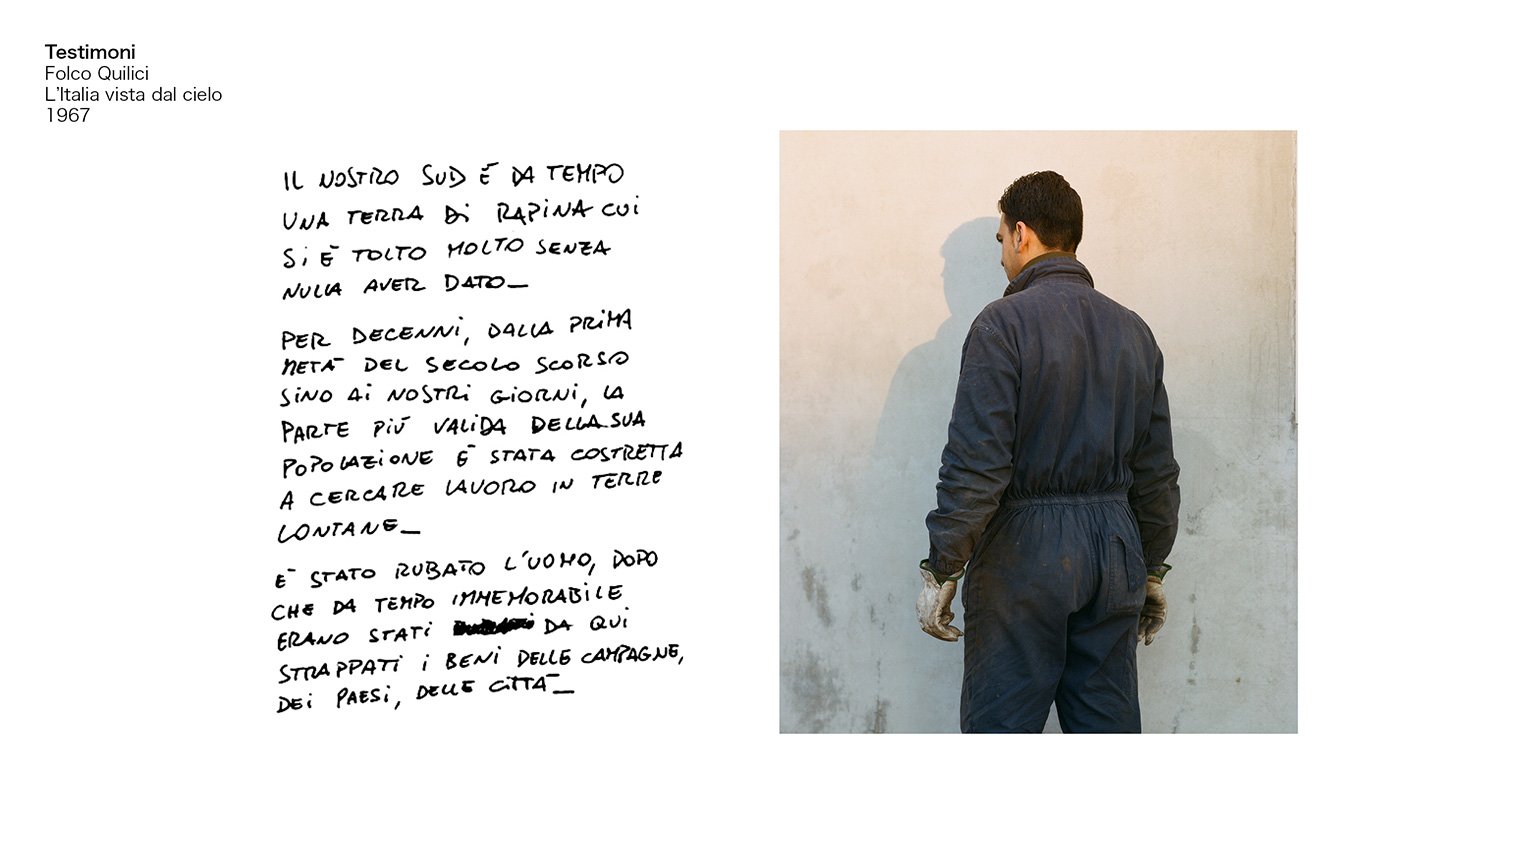 Testimoni
Folco Quilici
L'Italia vista dal cielo
1967
IL NOSTRO SUD È DA TEMPO
UNA TERRA DI RAPINA CUI
SI È TOLTO MOLTO SENZA
NULLA AVER DATO_
PER DECENNI, DALLA PRIMA
METÀ DEL SECOLO SCORSO
SINO AI NOSTRI GIORNI, LA
PARTE PIÙ VALIDA DELLA SUA
POPOLAZIONE È STATA COSTRETTA
A CERCARE LAVORO IN TERRE
LONTANE_
È STATO RUBATO L'UOMO, DOPO
CHE DA TEMPO IMMEMORABILE
ERANO STATI DA QUI
STRAPPATI I BENI DELLE CAMPAGNE,
DEI PAESI, DELLE CITTÀ_